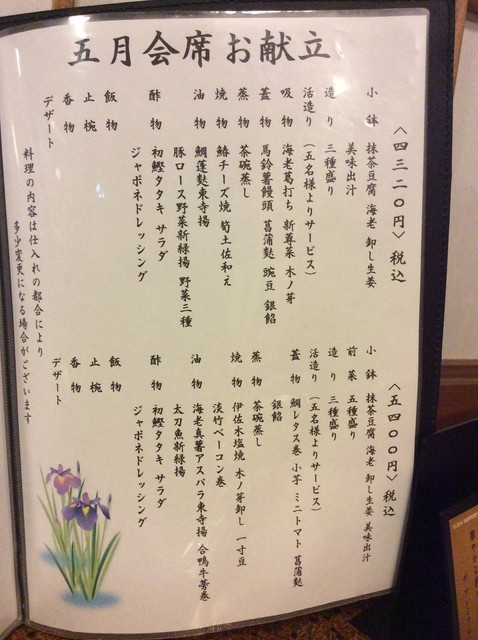 五月会席お献立
〈四三二〇円〉税込
小鉢 抹茶豆腐 海老 卸し生姜
美味出汁
造り 三種盛り
活造り (五名様よりサービス)
吸物 海老葛打ち 新蓴菜 木ノ芽
蓋物 馬鈴薯饅頭 菖蒲麩 豌豆 銀餡
蒸物 茶碗蒸し
焼物 鰆チーズ焼 筍土佐和え
油物 鯛蓬麩東寺揚
豚ロース野菜新緑揚 野菜三種
酢物 初鰹タタキ サラダ
ジャポネドレッシング
飯物
止椀
香物
デザート
〈五四〇〇円〉税込
小鉢 抹茶豆腐 海老 卸し生姜 美味出汁
前菜 五種盛り
造り 三種盛り
活造り (五名様よりサービス)
蓋物 鯛レタス巻 小芋 ミニトマト 菖蒲麩
銀餡
蒸物 茶碗蒸し
焼物 伊佐木塩焼 木ノ芽卸し 一寸豆
淡竹ベーコン巻
油物 海老真薯アスパラ東寺揚 合鴨牛蒡巻
太刀魚新緑揚
酢物 初鰹タタキ サラダ
ジャポネドレッシング
飯物
止椀
香物
デザート
料理の内容は仕入れの都合により
多少変更になる場合がございます